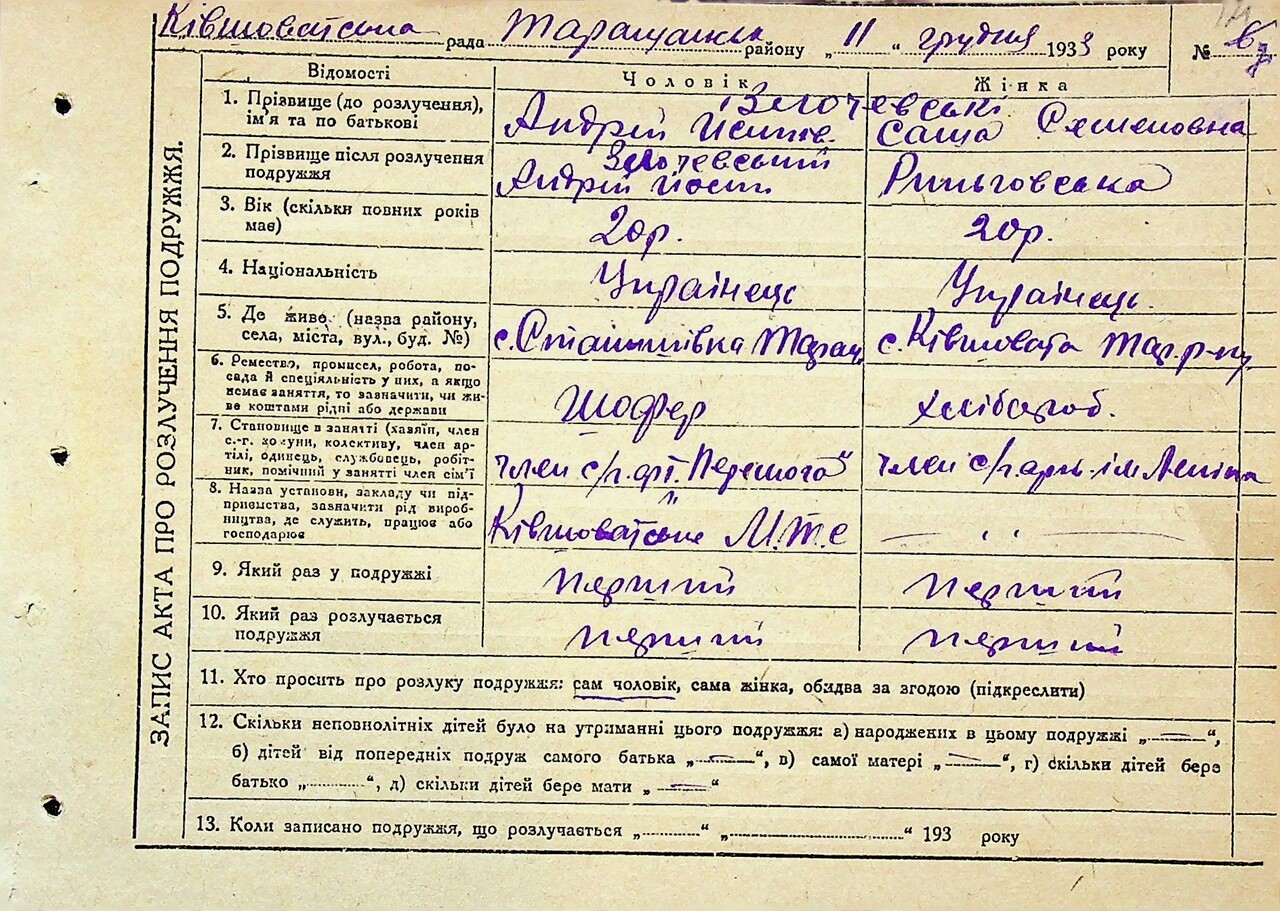 Ківшоватська рада Таращанськ району „11“ грудня 1933 року № 6
ЗАПИС АКТА ПРО РОЗЛУЧЕННЯ ПОДРУЖЖЯ.
Відомості Чоловік Жінка
1. Прізвище (до розлучення), ім'я та по батькові
Андрій Саша Семеновна
2. Прізвище після розлучення подружжя
Андрій
3. Вік (скільки повних років має)
20р. 20р.
4. Національність
Українець Українець.
5. Де живе (назва району, села, міста, вул., буд. №)
с. Станишівка Таращ с. Ківшовата Тар. р-ну
6. Ремество, промисел, робота, посада й спеціяльність у них, а якщо немає заняття, то зазначити, чи живе коштами рідні або держави
Шофер хлібороб.
7. Становище в занятті (хазяїн, член с.-г. комуни, колективу, член артілі, одинець, службовець, робітник, помічний у занятті член сім'ї
член с/г. арт. „Перемога“ член с/г. арт. ім Леніна
8. Назва установи, закладу чи підприємства, зазначити рід виробництва, де служить, працює або господарює
Ківшоватське М.Т.С — „ —
9. Який раз у подружжі
перший перший
10. Який раз розлучається подружжя
перший перший
11. Хто просить про розлуку подружжя: сам чоловік, сама жінка, обидва за згодою (підкреслити)
12. Скільки неповнолітніх дітей було на утриманні цього подружжя: а) народжених в цьому подружжі „—“,
б) дітей від попередніх подруж самого батька „—“, в) самої матері „—“, г) скільки дітей бере
батько „..........“, д) скільки дітей бере мати „—“
13. Коли записано подружжя, що розлучається „..........“ „..............................“ 193 року